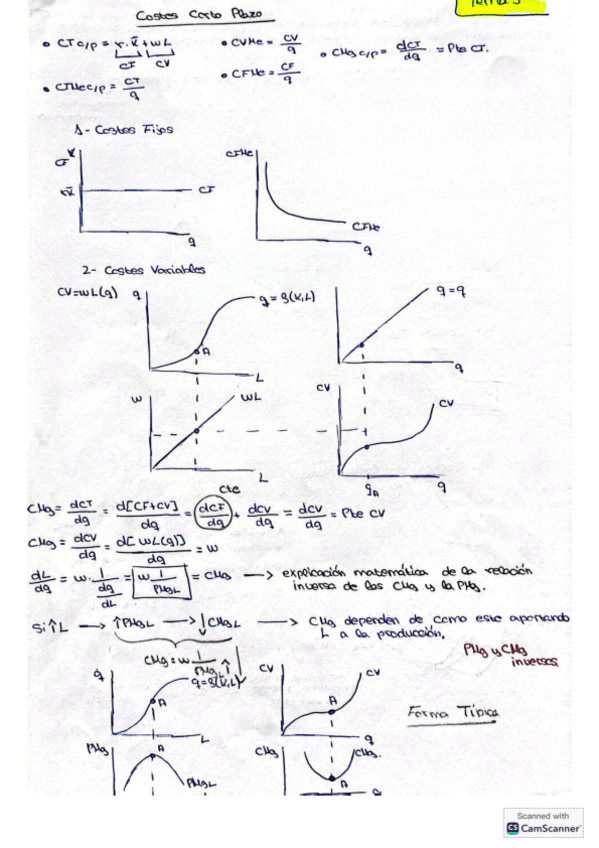 Costes Corto Plazo
• CTc/p = r·K̄ + wL
CF CV
• CVMe = CV/q
• CMgc/p = dCT/dq = Pte CT.
• CTMec/p = CT/q
• CFMe = CF/q
1- Costes Fijos
CF
CFMe
CF
CFMe
q
q
2- Costes Variables
CV=wL(q)
q
q=g(K,L)
q=q
A
L
q
w
wL
CV
CV
L
qA
q
cte
CMg = dCT/dq = d[CF+CV]/dq = dCF/dq + dCV/dq = dCV/dq = Pte CV
CMg = dCV/dq = d[wL(q)]/dq = w
dL/dq = w· 1/(dq/dL) = w 1/PMgL = CMg → explicación matemática de la relación
inversa de los CMg y la PMg.
Si ↑L → ↑PMgL → ↓CMgL → CMg dependen de como este aportando
L a la producción.
CMg = w 1/PMgL ↑
PMg y CMg
inversos
q
q=g(K,L)
CV
CV
A
A
L
q
Forma Típica
PMg
A
PMgL
CMg
CMg.
A
q
Scanned with
CS CamScanner